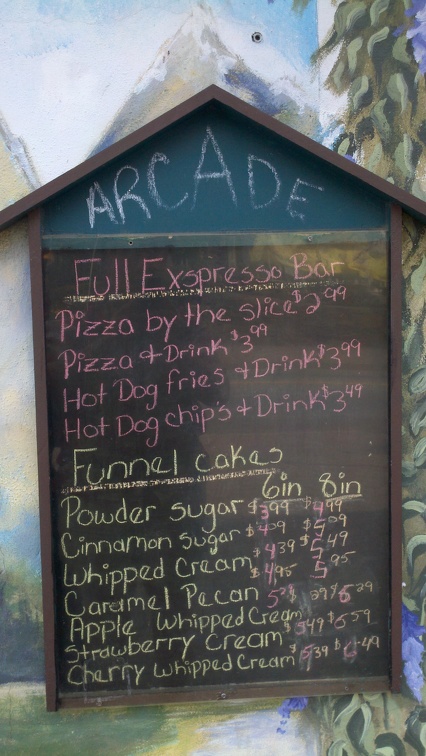 ARCADE
Full Exspresso Bar
Pizza by the slice $2.99
Pizza & Drink $3.99
Hot Dog fries & Drink $3.99
Hot Dog chips & Drink $3.49
Funnel cakes
6in 8in
Powder sugar $3.99 $4.99
Cinnamon sugar $4.09 $5.09
Whipped Cream $4.39 $5.49
Caramel Pecan $4.95 5.95
Apple Whipped Cream $6.29
Strawberry Cream $5.49 $6.59
Cherry Whipped Cream $5.39 $6.49